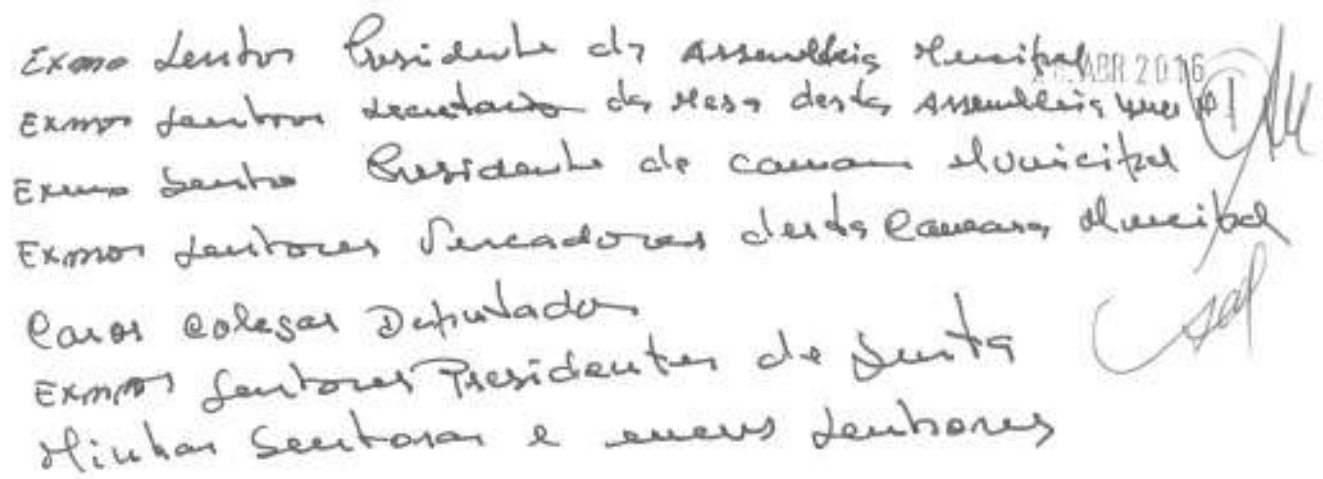 Exmo Senhor Presidente da Assembleia Municipal
APR 2016
Exmos Senhores Secretarios da Mesa desta Assembleia
Exmo Senhor Presidente da Camara Municipal
Exmos Senhores Vereadores desta Camara Municipal
Caros Colegas Deputados
Exmos Senhores Presidentes de Junta
Minhas Senhoras e meus Senhores